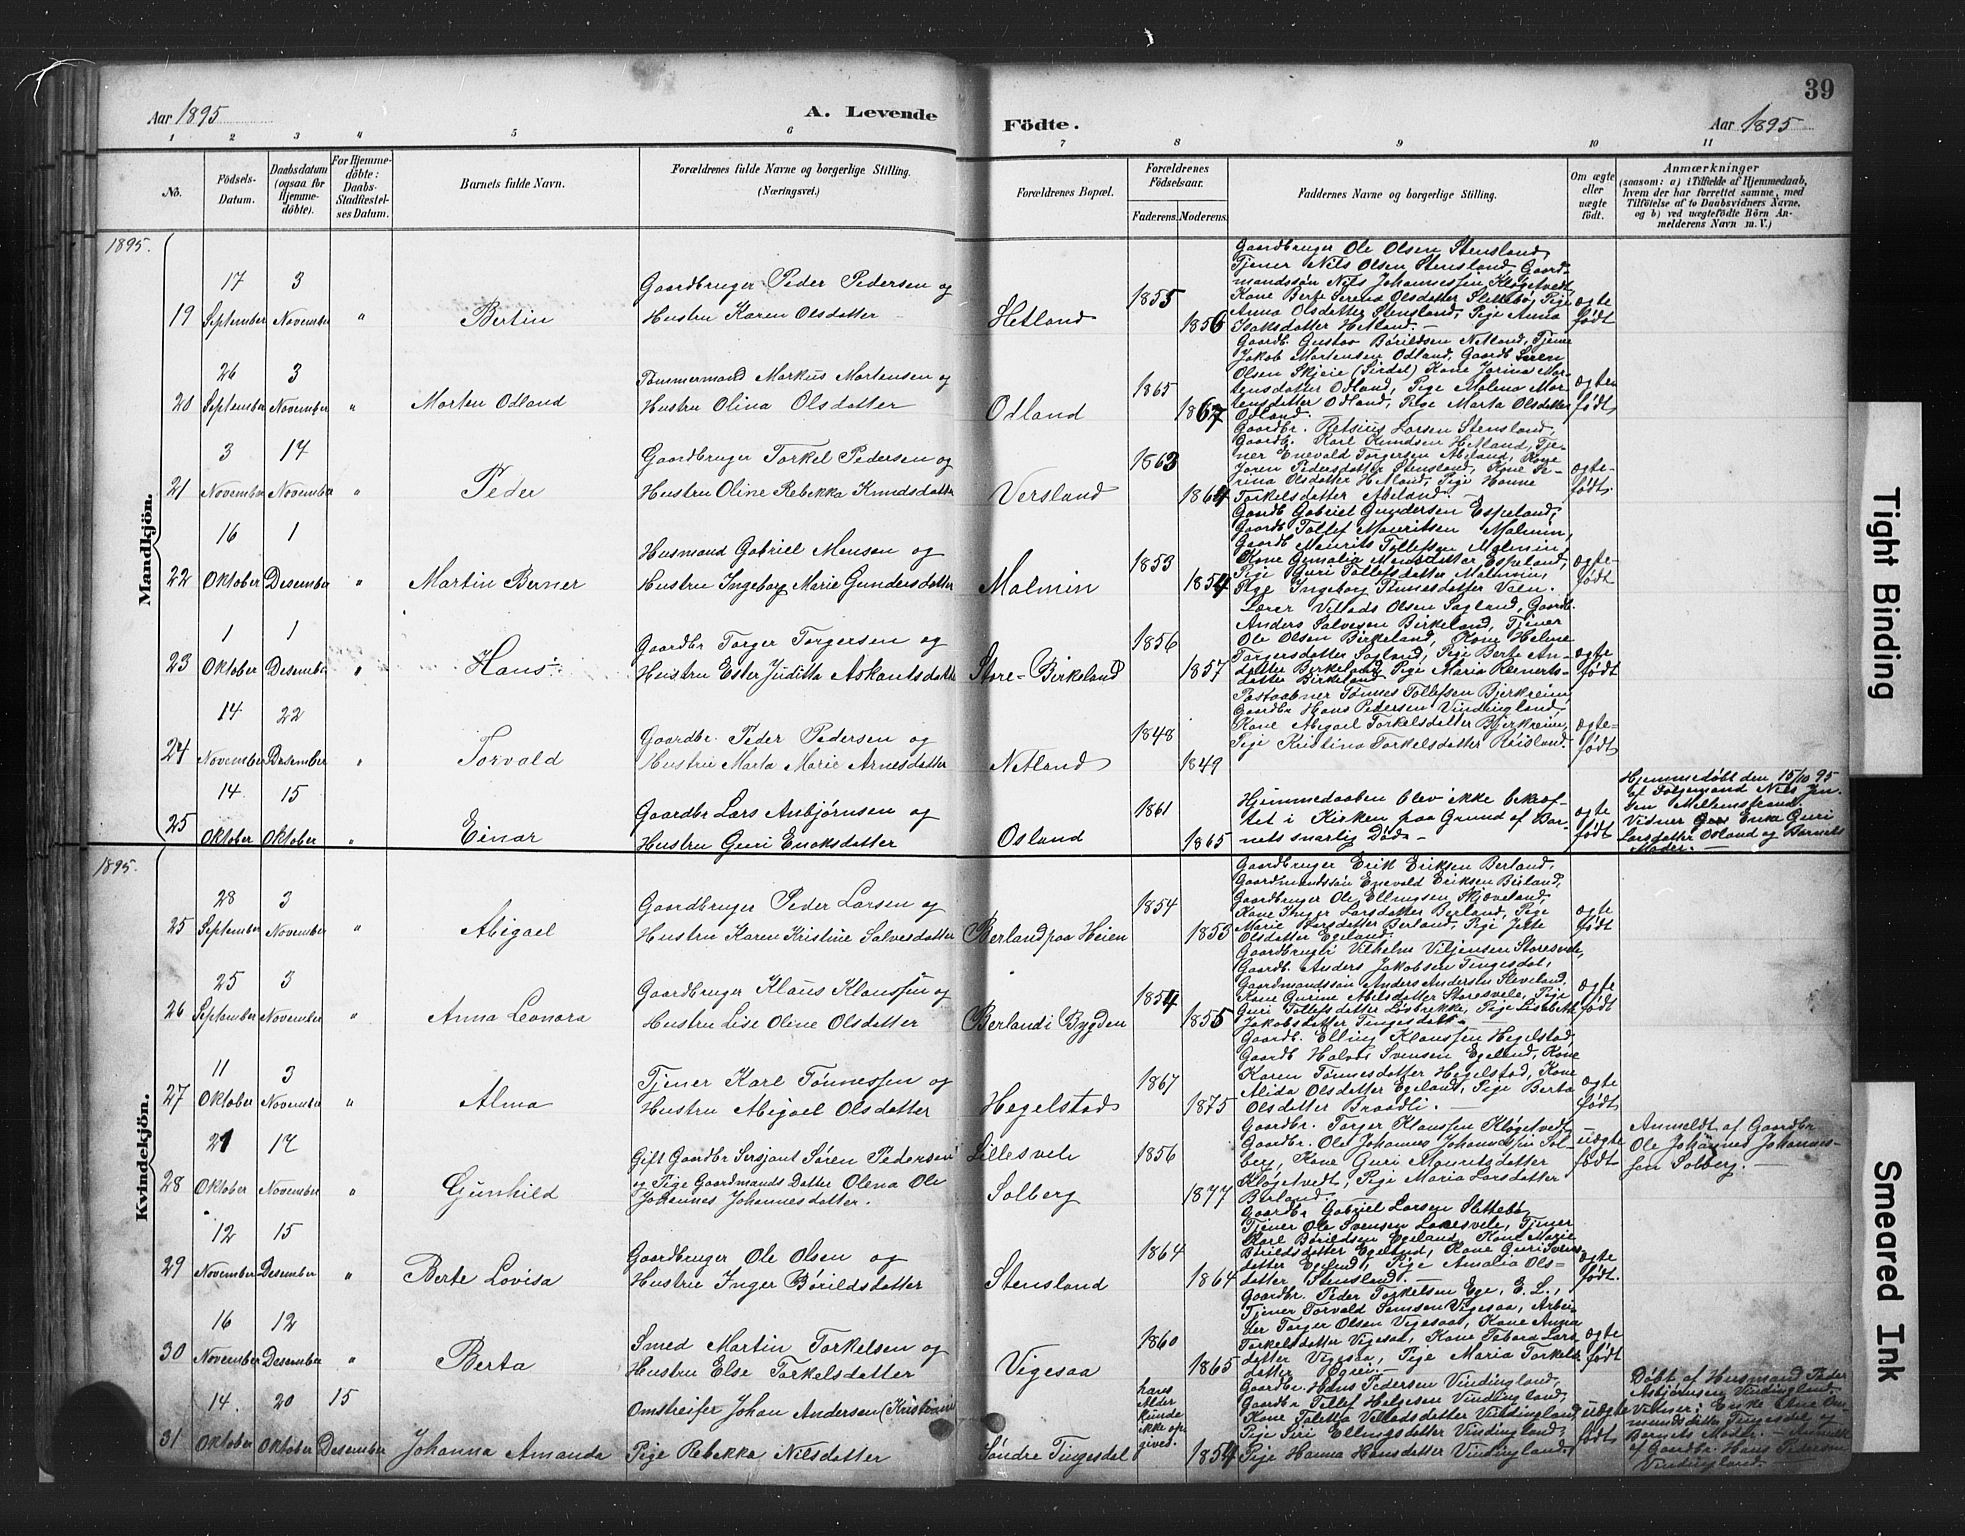 39
Aar 1895
A. Levende
Födte.
Aar 1895
1 2 3 4 5 6 7 8 9 10 11
No.
Födsels-Datum.
Daabsdatum (ogsaa for Hjemme-döbte).
For Hjemme-döbte: Daabs-Stadfæstelses Datum.
Barnets fulde Navn.
Forældrenes fulde Navne og borgerlige Stilling. (Næringsvei.)
Forældrenes Bopæl.
Forældrenes Födselsaar.
Faderens. Moderens.
Faddernes Navne og borgerlige Stilling.
Om ægte eller uægte födt.
Anmærkninger
(saasom: a) i Tilfælde af Hjemmedaab, hvem der har forrettet samme, med Tilföielse af to Daabsvidners Navne, og b) ved uægtefödte Börn Anmelderens Navn m. V.)
Mandkjön.
1895.
19 17 September 3 November " Bertin
Gaardbruger Peder Pedersen og
Hustru Karen Olsdatter
Hetland 1855 1856
Gaardbruger Ole Olsen Stensland,
Tjener Nils Olsen Stensland, Gaard-
mandssøn Nils Johannessen Kløgetvedt,
Kone Berte Serena Olsdatter Slettebø, Pige
Anna Olsdatter Stensland, Pige Anna
Isaksdatter Hetland.
ægte født
20 26 September 3 November " Morten Odland
Tømmermand Markus Mortensen og
Hustru Olina Olsdatter
Odland 1865 1867
Gaardb. Gustav Børildsen Netland, Tjener
Jakob Mortensen Odland, Gaardb. Søren
Olsen Skjeie (Sirdal) Kone Jorina Mor-
tensdatter Odland, Pige Malena Mor-
tensdatter Odland, Pige Marta Olsdatter
Odland.
ægte født
21 3 November 14 November " Peder
Gaardbruger Torkel Pedersen og
Hustru Oline Rebekka Knudsdatter
Versland 1863 1864
Gaardbr. Lars Larsen Stensland,
Gaardb. Karl Knudsen Hetland, Tje-
ner Enevald Torgersen Abeland, Kone
Joren Pedersdatter Stensland, Kone Se-
rina Olsdatter Hetland, Pige Hanne
Torkelsdatter Abeland.
ægte-født
22 16 Oktober 1 Desember " Martin Berner
Husmand Gabriel Monsen og
Hustru Ingeborg Marie Gundersdatter
Malmin 1853 1854
Gaardb Gabriel Gundersen Espeland,
Gaardb Tollef Mauritsen Malmin,
Gaardb Maurits Tollefsen Malmin
Pige Guri Tollefsdatter Malmin,
Pige Ingeborg Tønnesdatter
ægte-født
23 1 Oktober 1 Desember " Hans
Gaardbr Torger Torgersen og
Hustru Ester Juditta Askautsdatter
Store-Birkeland 1856 1857
Lærer Villads Olsen Sagland, Gaardb.
Anders Salvesen Birkeland, Tjener
Ole Olsen Birkeland, Kone Helene
Torgersdatter Sagland, Pige Berte An-
datter Birkeland, Pige Maria Reinerts-
datter Birkeland
ægte født
24 14 November 22 Desember " Torvald
Gaardbr. Peder Pedersen og
Hustru Marta Marie Arnesdatter
Netland 1848 1849
Postaabner Tønnes Tollefsen Bjerkreim,
Gaardbr Hans Pedersen Vindingland,
Kone Abigael Torkelsdatter Bjerkreim,
Pige Kristina Torkelsdatter Røisland.
ægte-født
25 14 Oktober 15 Oktober " Einar
Gaardbr Lars Asbjørnsen og
Hustru Guri Enoksdatter
Osland 1861 1865
Hjemmedaaben blev ikke bekræf-
tet i Kirken paa Grund af Bar-
nets snarlig Død
ægte født
Hjemmedøbt den 15/10 95
af Følgemand Nils Jen-
sen Mellemstrand.
Vidner Enke Guri
Larsdatter Osland og Barnets
Moder.
Kvindekjön.
1895.
25 28 September 3 November " Abigael
Gaardbruger Peder Larsen og
Hustru Karen Kristine Salvesdatter
Berland paa Heien 1854 1853
Gaardbruger Erik Eriksen Berland,
Gaardmandssøn Enevald Eriksen Berland,
Gaardbruger Ole Ellingsen Skjæveland,
Kone Inger Larsdatter Berland, Pige
Marie Larsdatter Berland, Pige Jette
Olsdatter Egeland.
ægte født
26 25 September 3 November " Anna Leonora
Gaardbruger Klaus Klaussen og
Hustru Lise Oline Olsdatter
Berland i Bygden 1854 1855
Gaardbruger Vilhelm Viljensen Storesvele,
Gaardb. Anders Jakobsen Tingesdal,
Gaardmandssøn Anders Andersen Sleveland,
Kone Gurine Abelsdatter Storesvele, Pige
Guri Tollefsdatter Løsbrekke, Pige Lisabeth
Jakobsdatter Tingesdal.
ægte født
27 11 Oktober 3 November " Alma
Tjener Karl Tønnessen og
Hustru Abigael Olsdatter
Hegelstad 1867 1875
Gaardb. Elling Klaussen Hegelstad,
Gaardb Halvor Svensen Egeland, Kone
Karen Tønnesdatter Hegelstad, Kone
Alida Olsdatter Egeland, Pige Berta
Olsdatter Braadli.
ægte født
28 21 Oktober 17 November " Gunhild
Gift Gaardbr Sersjant Søren Pedersen
og Pige Gaardmands Datter Olena Ole
Johannes Johannesdatter.
Lillesvele
Solberg 1856 1877
Gaardbr. Torger Klaussen Kløgetvedt,
Gaardbr. Ole Johannes Johannessen Sol-
berg, Kone Guri Mauritsdatter
Kløgetvedt, Pige Maria Larsdatter
Berland.
uægte født
Anmeldt af Gaardbr
Ole Johannes Johannes-
sen Solberg.
29 12 November 15 Desember " Berte Lovisa
Gaardbruger Ole Olsen og
Hustru Inger Børildsdatter
Stensland 1864 1864
Gaardbr Gabriel Larsen Slettebø,
Tjener Ole Svensen Lonesvele, Tjener
Karl Børildsen Egeland, Kone Marie
Børildsdatter Egeland, Kone Guri Svens-
datter Egeland, Pige Amalia Ols-
datter Stensland.
ægte født.
30 16 November 12 Desember " Berta
Smed Martin Torkelsen og
Hustru Else Torkelsdatter
Vigesaa 1860 1865
Gaardbr. Peder Torkelsen Ege, E. L.,
Tjener Torvald Samsen Vigesaa, Arbei-
der Torger Olsen Vigesaa, Kone Anna
Torkelsdatter Vigesaa, Kone Tebora Lars-
datter Vigesaa, Pige Maria Torkels-
datter
ægte født
31 14 Oktober 20 Oktober 15 Desember Johanna Amanda
Omstreifer Johan Andersen (Kristian
Pige Rebekka Nilsdatter
Søndre Tingesdal
hans Alder kunde ikke op-gives. 1854
Gaardbr. Hans Pedersen Vindingland,
Gaardbr Tollef Helgesen Vindingland,
Kone Taletta Villadsdatter Vindingland,
Pige Siri Ellingsdatter Vindingland,
Pige Hanna Hansdatter Vindingland.
uægte født
Døbt af Husmand Peder
Asbjørnsen Vindingland
Vidner: Enke Ane
mundsdatter Tingesdal og
Barnets Moder. Anmeldt
af Gaardbr. Hans Pedersen
Vindingland.
Tight Binding
Smeared Ink